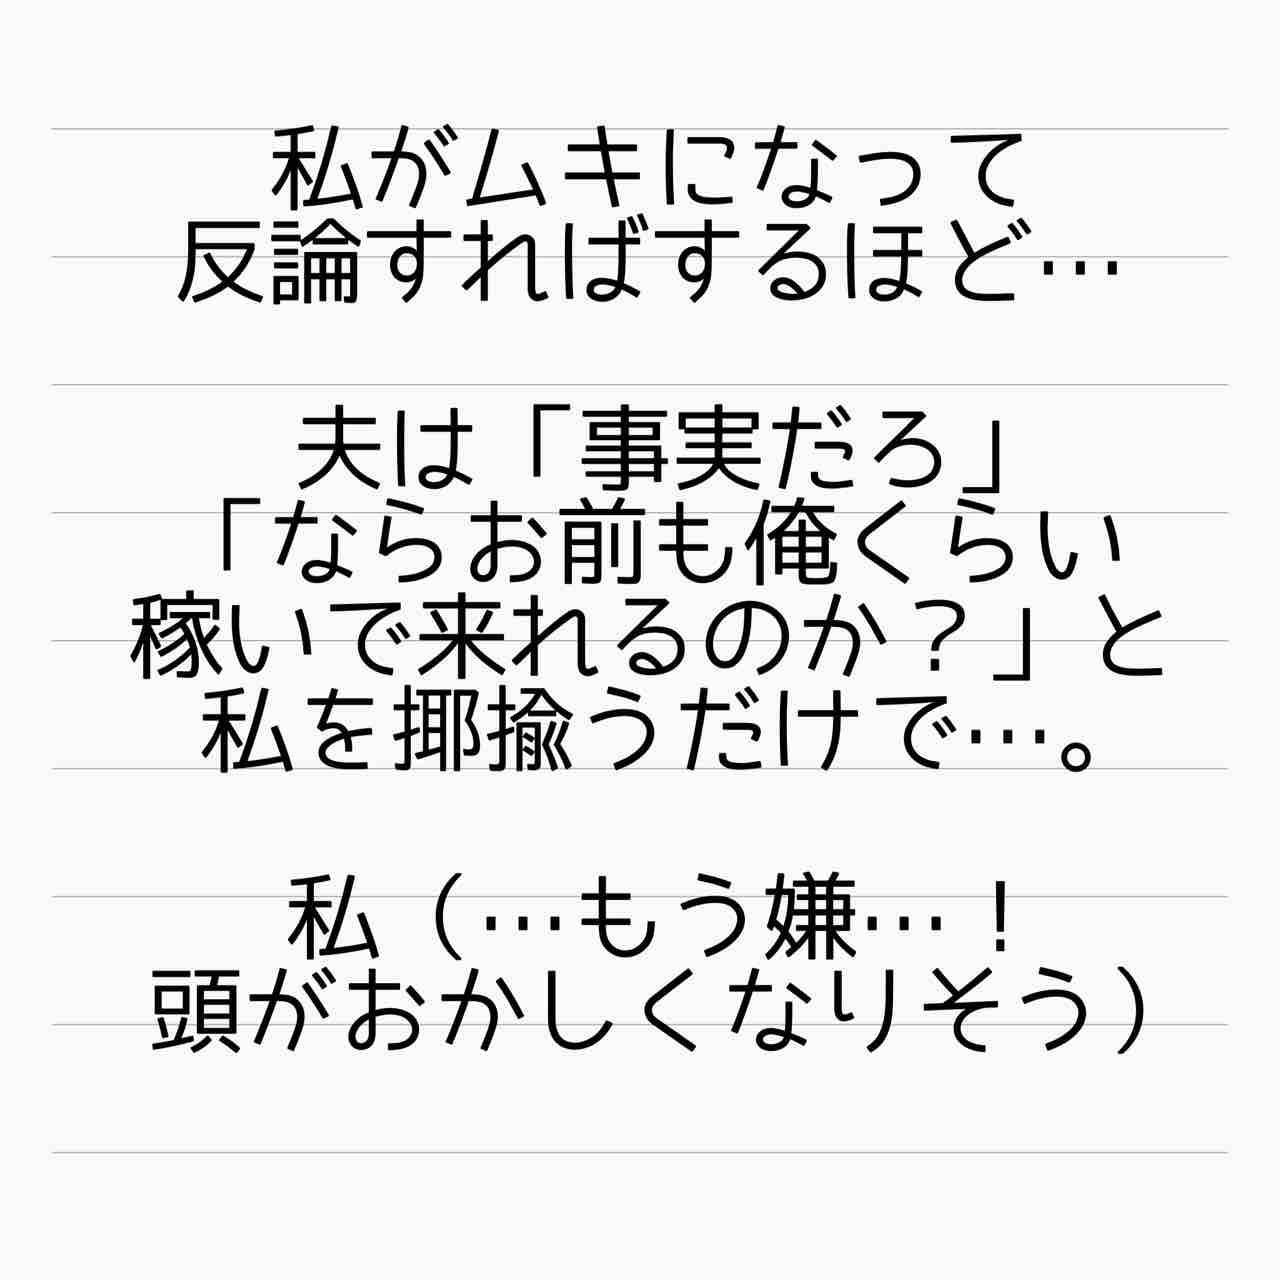 私がムキになって
反論すればするほど…
夫は「事実だろ」
「ならお前も俺くらい
稼いで来れるのか？」と
私を揶揄うだけで…。
私（…もう嫌…！
頭がおかしくなりそう）